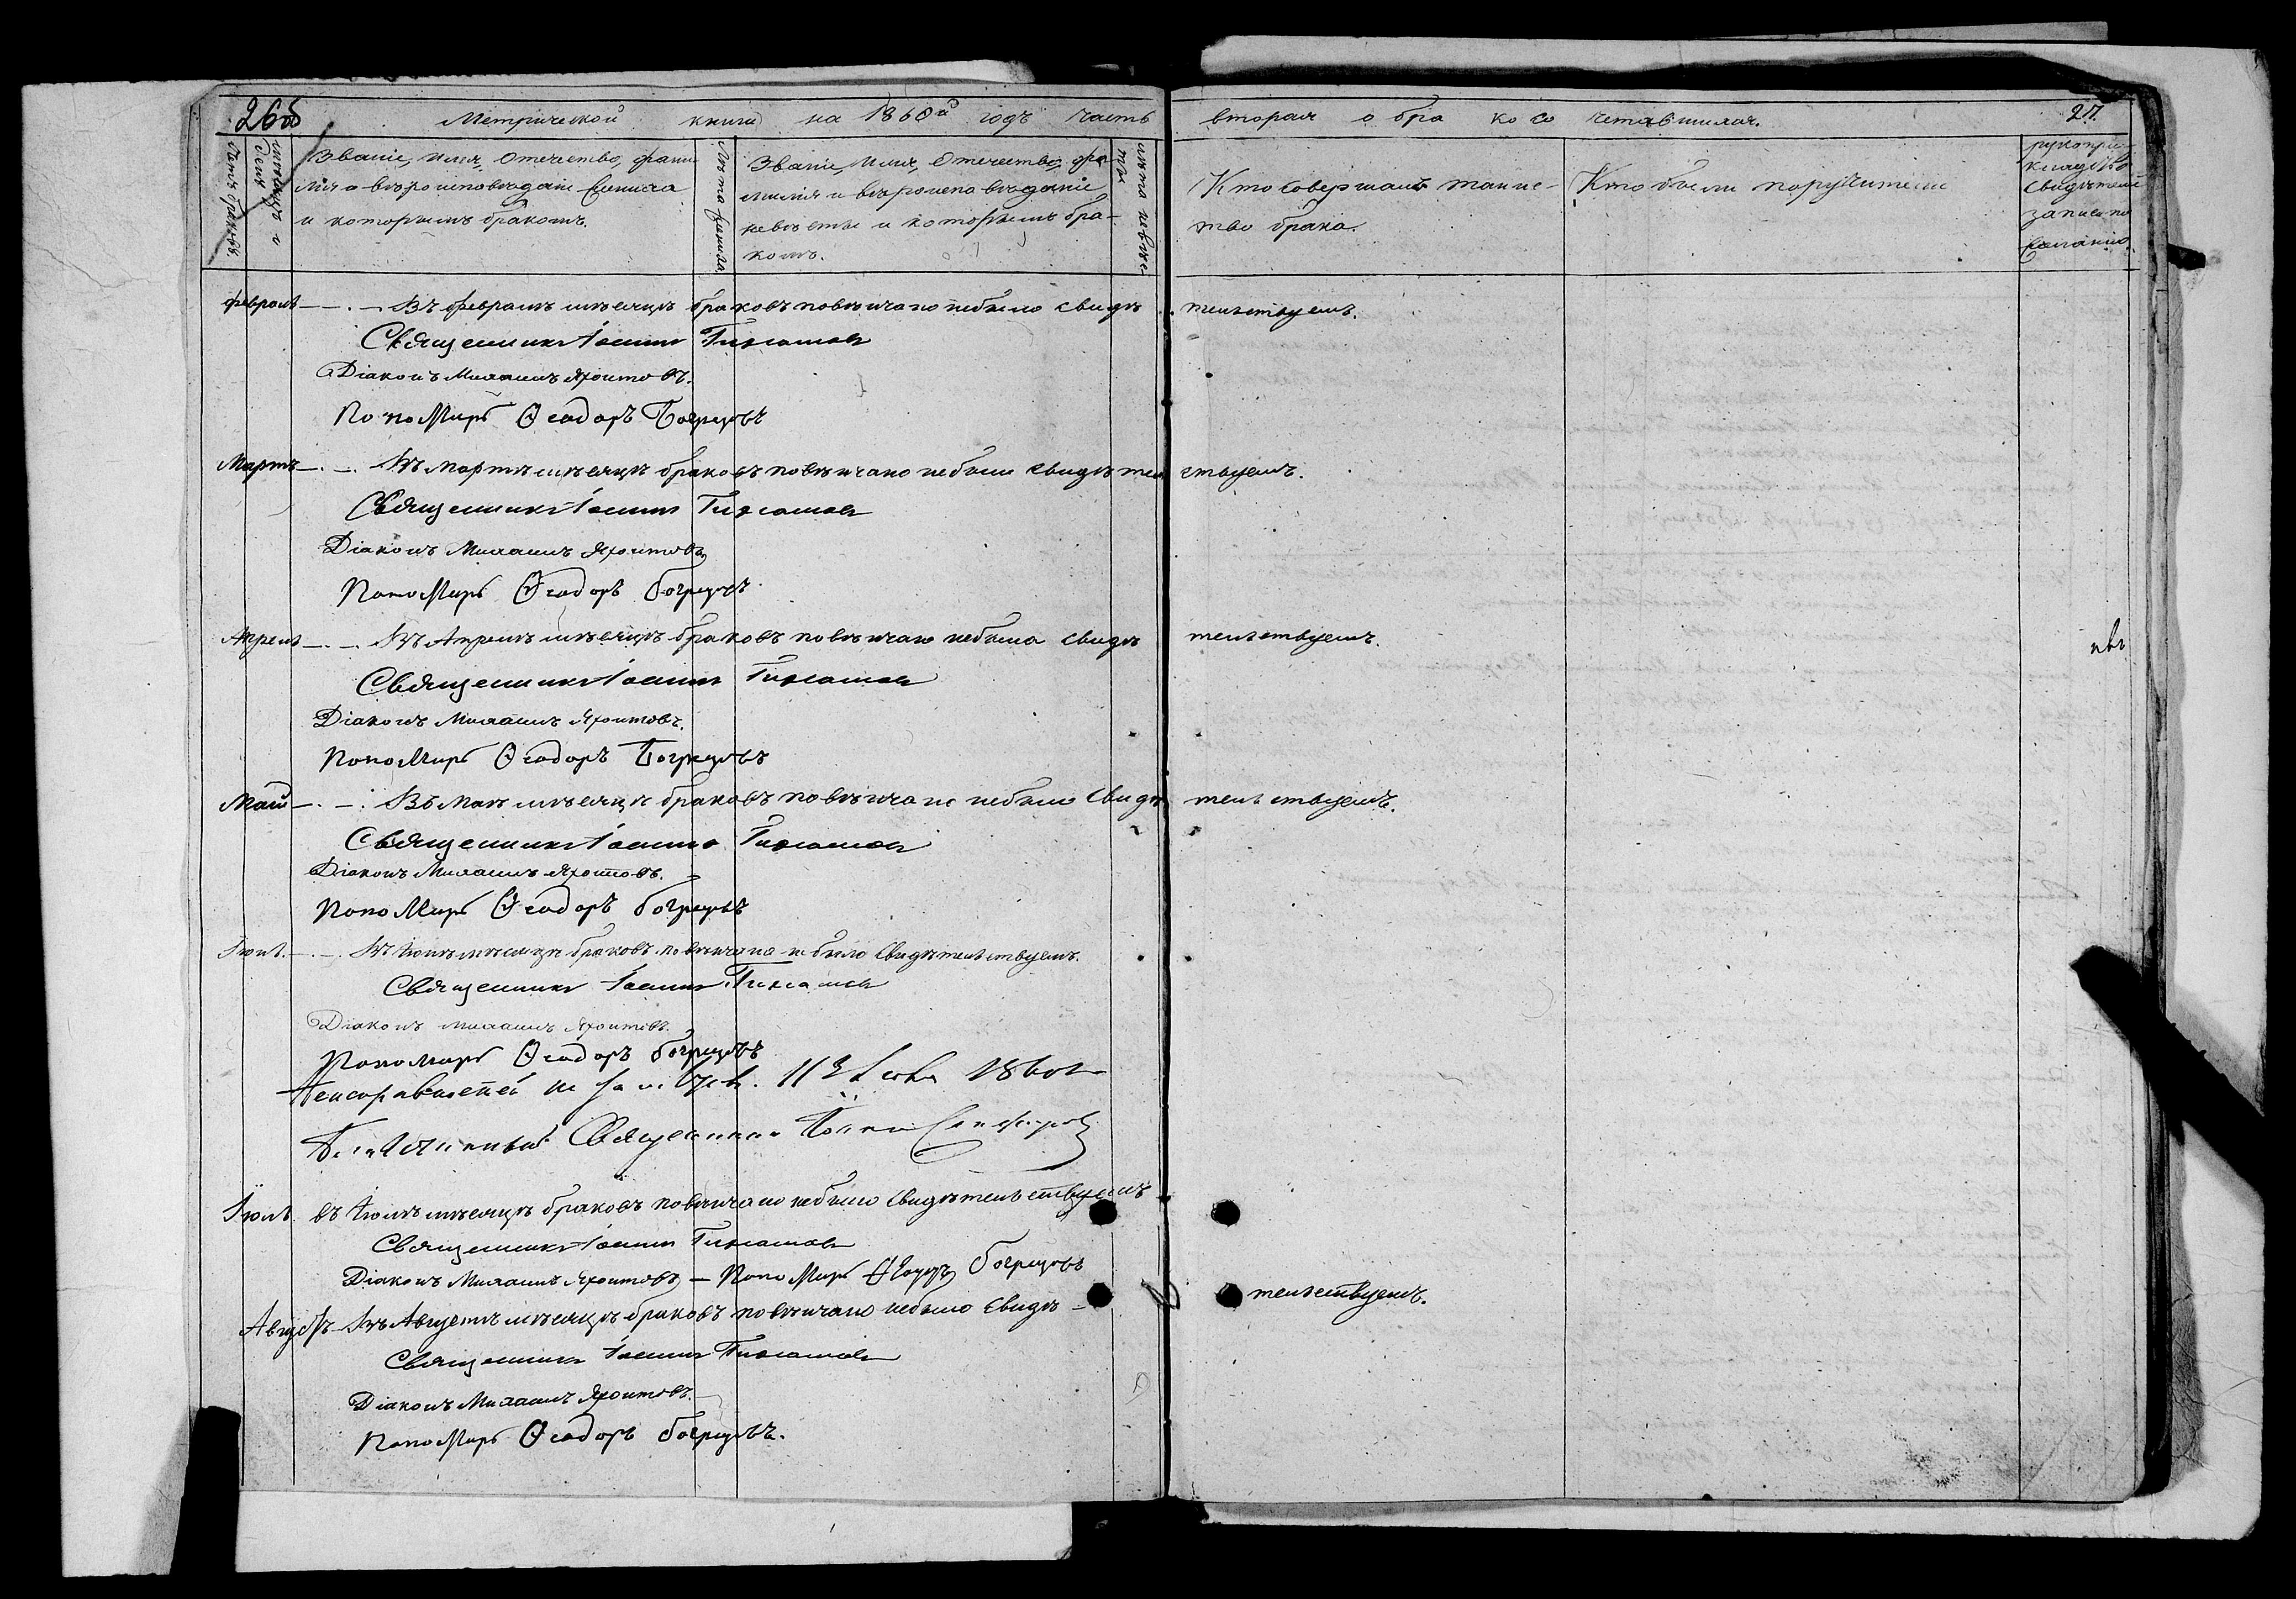 26об Метрической книги на 1860й годъ часть вторая о бракосочетавшихся. 27.
Счетъ браковъ.
мѣсяцъ и день
Званіе, имя, отечество, фами
лія и вѣроисповѣданіе жениха
и которымъ бракомъ.
Лѣта жениха
Званіе, имя, отечество, фа-
милія и вѣроисповѣданіе
невѣсты и которымъ бра-
комъ.
лѣта невѣс-
ты
Кто совершалъ таинс-
тво брака.
Кто были поручители
рукопри-
кладство
свидѣтелей
записи по
желанію.
Февраль — . — Въ февралѣ мѣсяцѣ браковъ повѣнчано небыло свидѣ тельствуемъ.
Священникъ Іоаннъ
Діаконъ Михаилъ Яхонтовъ.
Пономарь Ѳеодоръ Богрецовъ
Мартъ — . — Въ Мартѣ мѣсяцѣ браковъ повѣнчано небыло свидѣтель ствуемъ.
Священникъ Іоаннъ
Діаконъ Михаилъ Яхонтовъ
Пономарь Ѳеодоръ Богрецовъ
Апрель — . — Въ Апрелѣ мѣсяцѣ браковъ повѣнчано небыло свидѣ тельствуемъ.
Священникъ Іоаннъ
Діаконъ Михаилъ Яхонтовъ.
Пономарь Ѳеодоръ Богрецовъ
Май — . — . Въ Маѣ мѣсяцѣ браковъ повѣнчано небыло свидѣ тельствуемъ.
Священникъ Іоаннъ
Діаконъ Михаилъ Яхонтовъ.
Пономарь Ѳеодоръ Богрецовъ
Іюнь. — . — . Въ Іюнѣ мѣсяцѣ браковъ повѣнчано небыло свидѣтельствуемъ.
Священникъ Іоаннъ
Діаконъ Михаилъ Яхонтовъ.
Пономарь Ѳеодоръ Богрецовъ
Неисправностей не 1860
Благочинный Священникъ
Іюль въ Іюлѣ мѣсяцѣ браковъ повѣнчано небыло свидѣтельствуемъ
Священникъ Іоаннъ
Діаконъ Михаилъ Яхонтовъ — Пономарь Ѳеодоръ Богрецовъ
Августъ Въ Августѣ мѣсяцѣ браковъ повѣнчано небыло свидѣ- тельствуемъ.
Священникъ Іоаннъ
Діаконъ Михаилъ Яхонтовъ.
Пономарь Ѳеодоръ Богрецовъ.